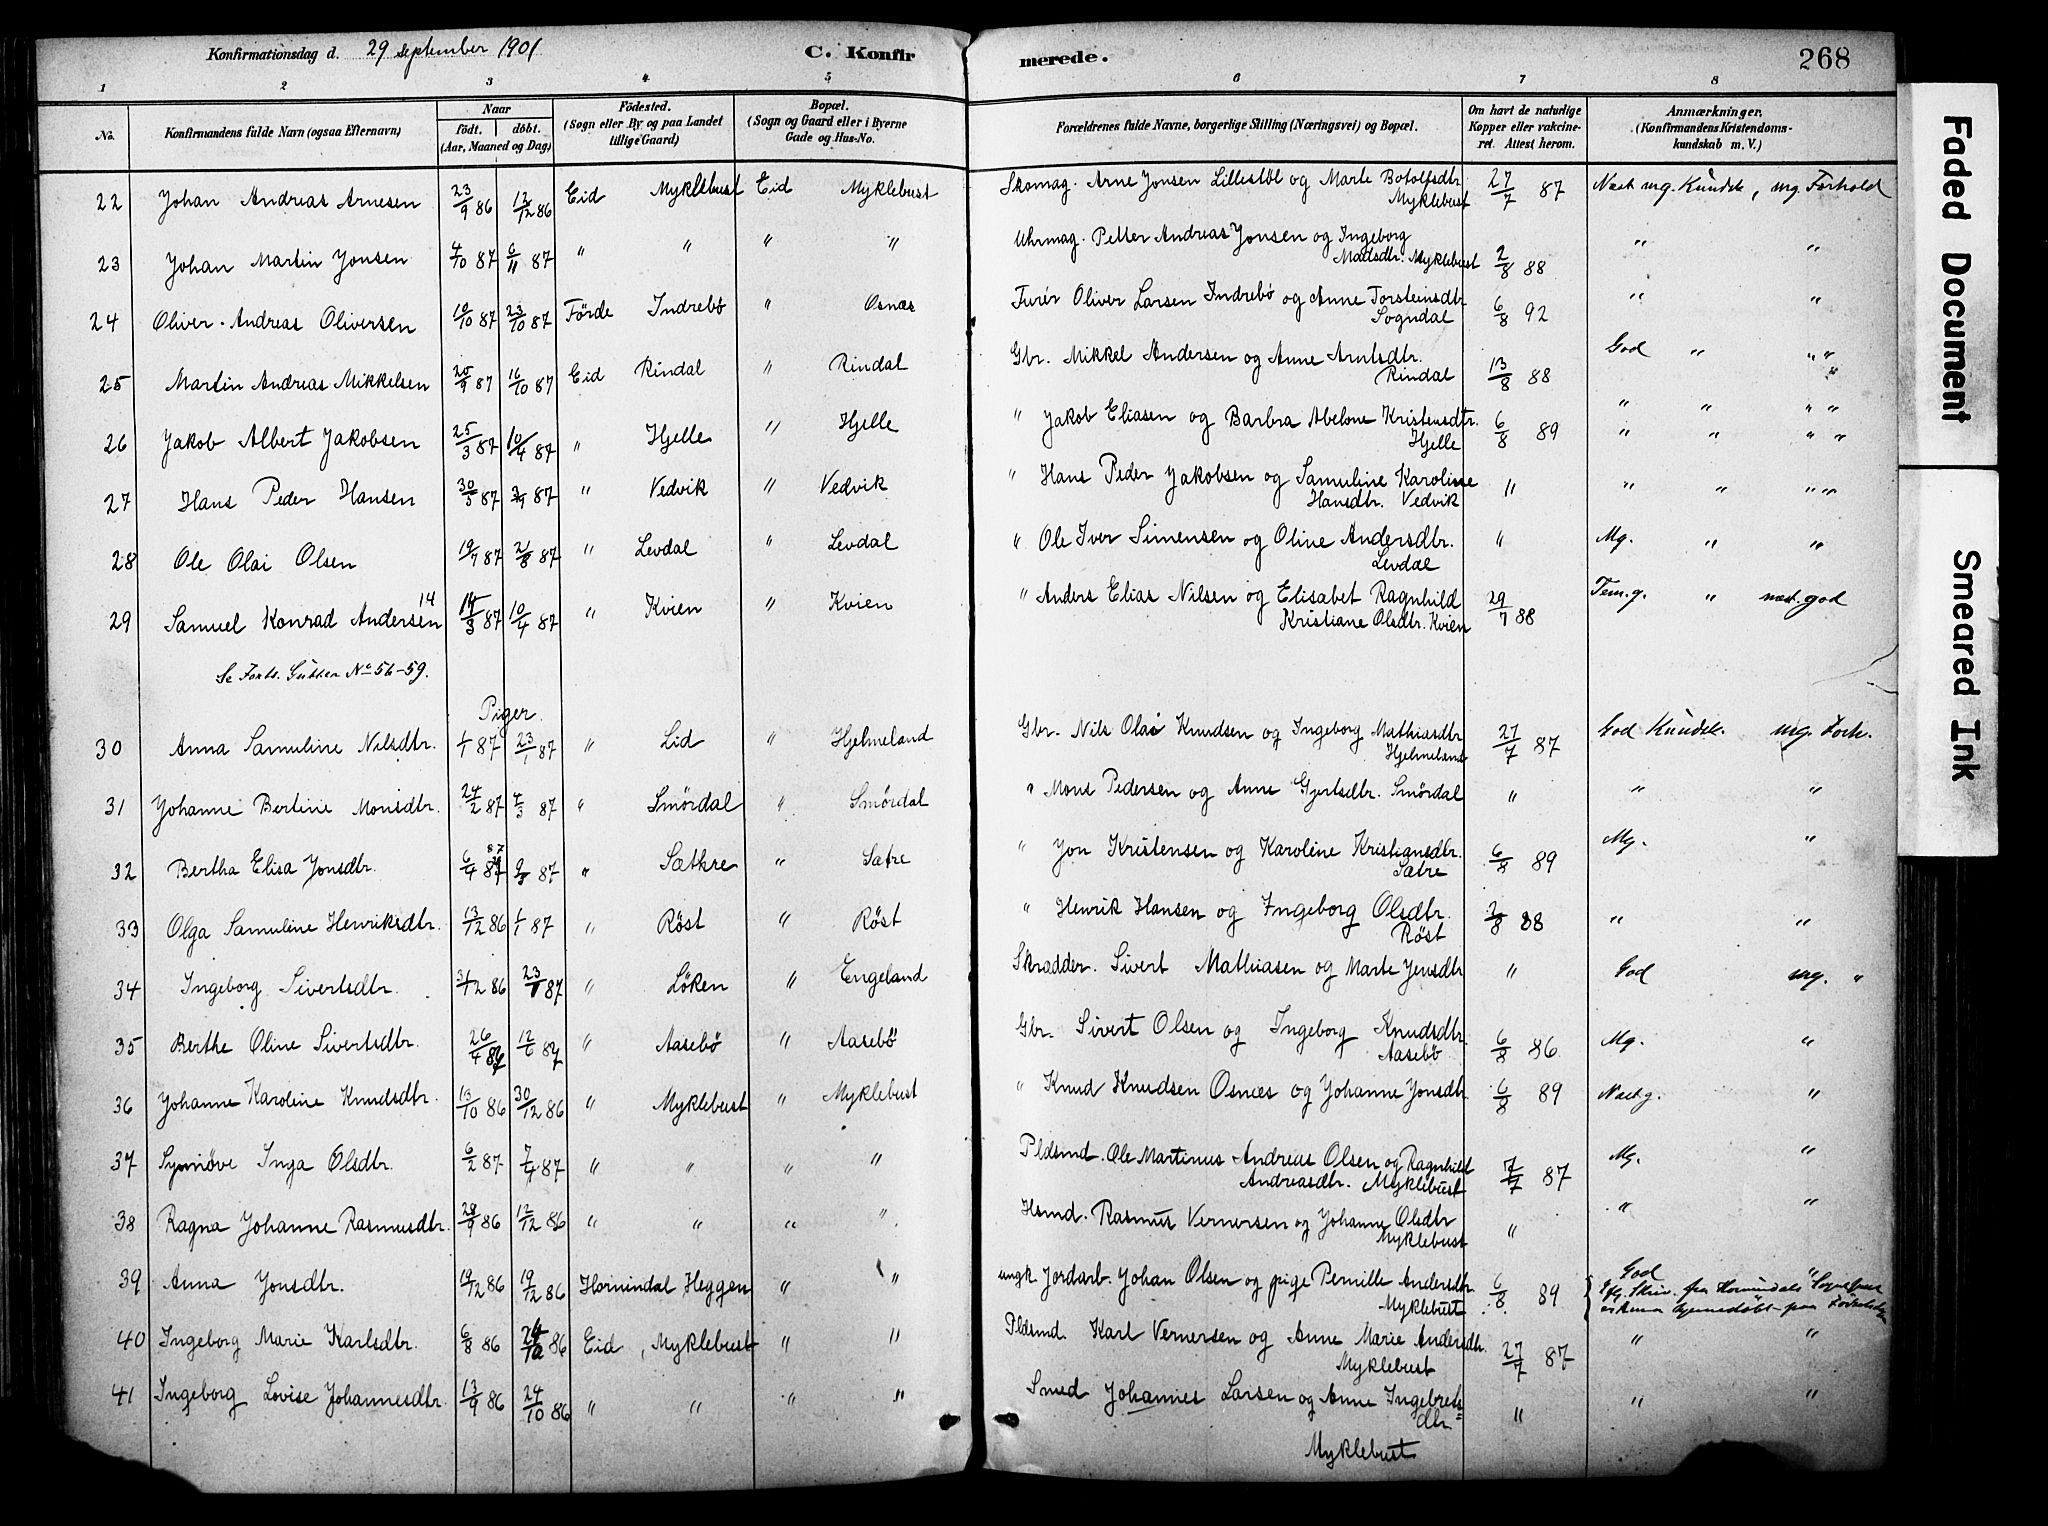 Konfirmationsdag d. 29 september 1901 C. Konfir merede. 268
1 2 3 4 5 6 7 8
No. Konfirmandens fulde Navn (ogsaa Efternavn) Naar født. døbt. (Aar, Maaned og Dag) Fødested. (Sogn eller By og paa Landet tillige Gaard) Bopæl. (Sogn og Gaard eller i Byerne Gade og Hus-No. Forældrenes fulde Navne, borgerlige Stilling (Næringsvei) og Bopæl. Om havt de naturlige Kopper eller vakcineret. Attest herom. Anmærkninger. (Konfirmandens Kristendomskundskab m. V.)
22 Johan Andreas Arnesen 23/9 86 12/12 86 Eid Myklebust Eid Myklebust Skomag. Arne Jonsen Lillestøl og Marte Botolfsdtr. Myklebust 27/7 87 Næst mg. Kundsk, mg. Forhold
23 Johan Martin Jonsen 4/10 87 6/11 87 " " " " Uhrmag. Petter Andreas Jonsen og Ingeborg Madsdtr. Myklebust 2/8 88 " "
24 Oliver Andreas Oliversen 10/10 87 23/10 87 Førde Indrebø " Osnæs Furér Oliver Larsen Indrebø og Anne Torsteinsdtr Sogndal 6/8 92 " "
25 Martin Andreas Mikkelsen 20/9 87 16/10 87 Eid Rindal " Rindal Gbr. Mikkel Andersen og Anne Arntsdtr. Rindal 13/8 88 God " " "
26 Jakob Albert Jakobsen 25/3 87 10/4 87 " Hjelle " Hjelle " Jakob Eliasen og Barbra Abelone Kristensdtr. Hjelle 6/8 89 " " " "
27 Hans Peder Hansen 30/5 87 87 " Vedvik " Vedvik " Hans Peder Jakobsen og Samuline Karoline Hansdtr. Vedvik " " " " "
28 Ole Olai Olsen 19/7 87 21/8 87 " Levdal " Levdal " Ole Iver Simensen og Oline Andersdtr. Levdal " Mg. " "
29 Samuel Konrad Andersen 14 14/3 87 10/4 87 " Kvien " Kvien " Anders Elias Nilsen og Elisabet Ragnhild Kristiane Olsdtr. Kvien 29/7 88 Tem.g. " næst. god
Se Forts. Gutter No 56-59.
Piger.
30 Anna Samuline Nilsdtr. 1/1 87 23/1 87 " Lid " Hjelmeland Gbr. Nils Olai Knudsen og Ingeborg Mathiasdtr Hjelmeland 27/7 87 God Kundsk. mg. Forh.
31 Johanne Bertine Monsdtr. 24/2 87 4/3 87 " Smørdal " Smørdal " Mons Pedersen og Anne Gjertsdtr. Smørdal " " "
32 Bertha Elisa Jonsdtr. 6/4 87 87 " Sætkre " Sætre " Jon Kristensen og Karoline Kristiansdtr. Sætre 6/8 89 Mg. "
33 Olga Samuline Henriksdtr. 13/12 86 1/1 87 " Røst " Røst " Henrik Hansen og Ingeborg Olsdtr. Røst 2/8 88 " "
34 Ingeborg Sivertsdtr. 31/12 86 23/1 87 " Løken " Engeland Skrædder. Sivert Mathiasen og Marte Jensdtr " God mg. "
35 Berthe Oline Sivertsdtr. 26/4 87 12/6 87 " Aasebø " Aasebø Gbr. Sivert Olsen og Ingeborg Knudsdtr. Aasebø 6/8 86 Mg. "
36 Johanne Karoline Knudsdtr. 13/10 86 30/12 86 " Myklebust " Myklebust " Knud Knudsen Osnæs og Johanne Jonsdtr. 6/8 89 Næst g. "
37 Synnøve Inga Olsdtr. 6/2 87 7/4 87 " " " " Pldsmd. Ole Martinus Andreas Olsen og Ragnhild Andreasdtr. Myklebust 7/7 87 Mg. "
38 Ragna Johanne Rasmusdtr. 28/9 86 12/12 86 " " " " Hsmd. Rasmus Vernersen og Johanne Olsdtr Myklebust " " "
39 Anna Jonsdtr. 19/12 86 19/12 86 Hornindal Heggen " " ungk Jordarb. Johan Olsen og pige Pernille Andersdtr. Myklebust 6/8 89 God " fra Hornindals
40 Ingeborg Marie Karlsdtr. 6/8 86 24/10 86 Eid, Myklebust " " Pldsmd. Karl Vernersen og Anne Marie Andersdtr. Myklebust 27/7 87 " "
41 Ingeborg Lovise Johannesdtr. 13/9 86 24/10 86 " " " " Smed Johannes Larsen og Anne Ingebretsdtr Myklebust " " "
Faded Document
Smeared Ink